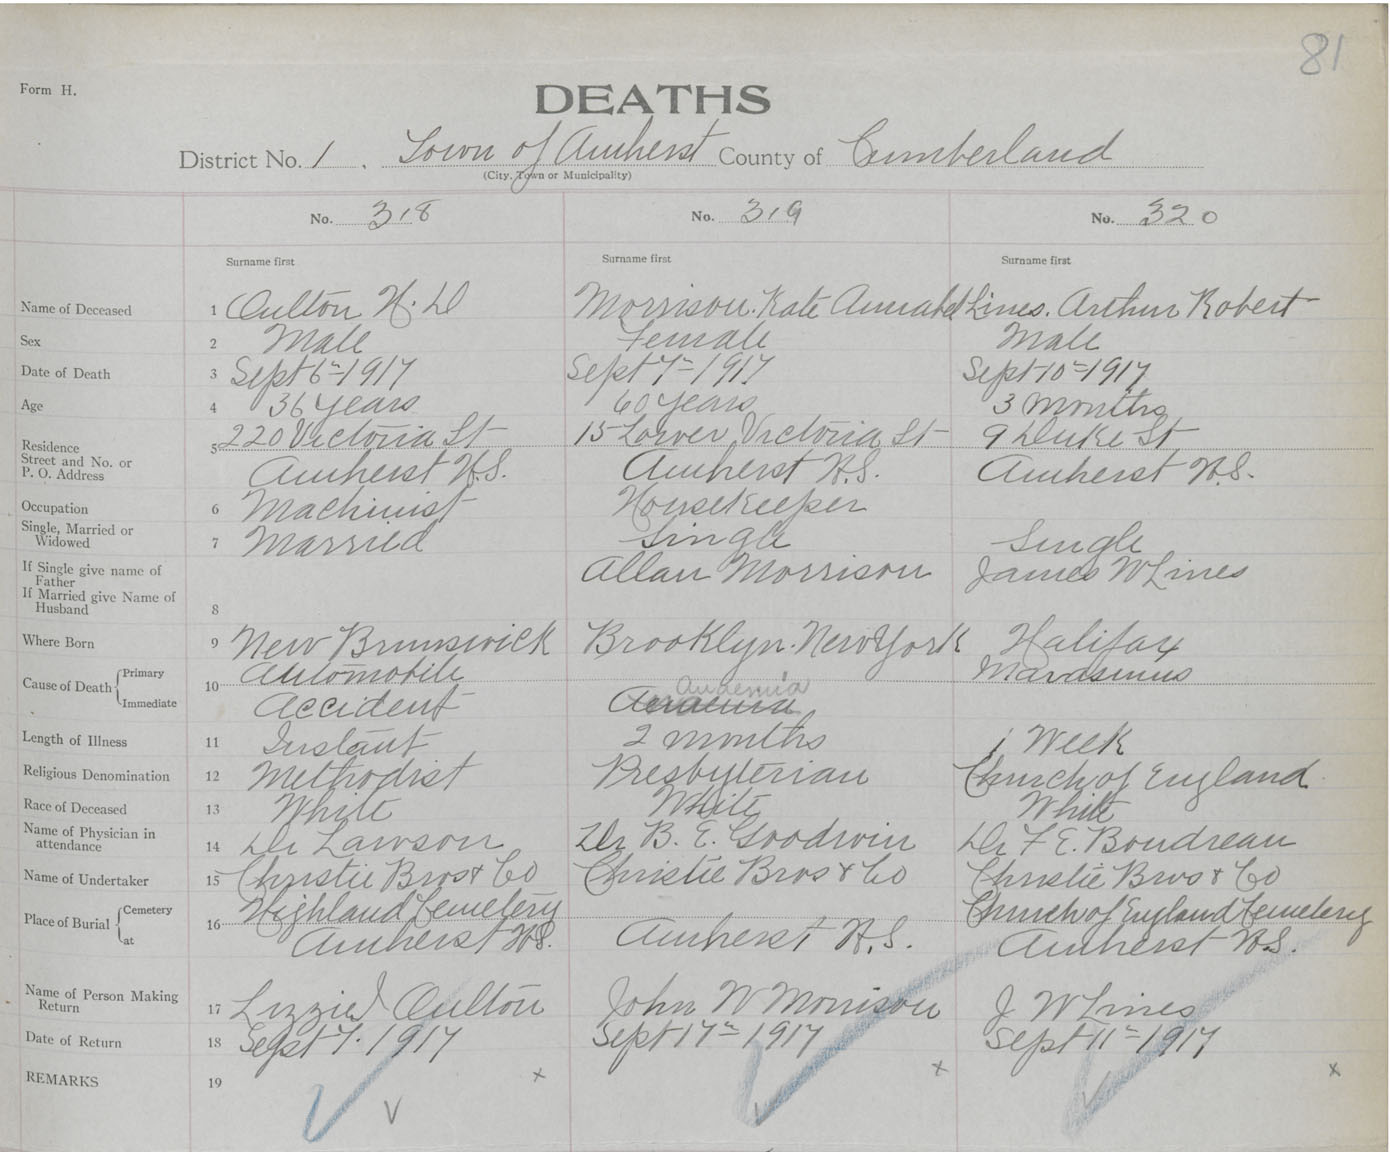 81
Form H.
DEATHS
District No. 1. Town of Amherst County of Cumberland
(City, Town or Municipality)
No. 318 No. 319 No. 320
Surname first Surname first Surname first
Name of Deceased 1 Oulton H. D Morrison. Kate Annabel Lines. Arthur Robert
Sex 2 Male Female Male
Date of Death 3 Sept 6th 1917 Sept 7th 1917 Sept 10th 1917
Age 4 36 years 60 years 3 months
Residence 5 220 Victoria St 15 Lower Victoria St 9 Duke St
Street and No. or
P. O. Address Amherst N.S. Amherst N.S. Amherst N.S.
Occupation 6 Machinist Housekeeper
Single, Married or
Widowed 7 Married Single Single
If Single give name of
Father Allan Morrison James W Lines
If Married give Name of
Husband 8
Where Born 9 New Brunswick Brooklyn. New York Halifax
Cause of Death Primary 10 Automobile Marasmus
Immediate Accident Anaemia
Length of Illness 11 Instant 2 months 1 Week
Religious Denomination 12 Methodist Presbyterian Church of England
Race of Deceased 13 White White White
Name of Physician in
attendance 14 Dr Lawson Dr B. E. Goodwin Dr F E. Boudreau
Name of Undertaker 15 Christie Bros & Co Christie Bros & Co Christie Bros & Co
Place of Burial Cemetery 16 Highland Cemetery Church of England Cemetery
at Amherst N.S. Amherst N.S. Amherst N.S.
Name of Person Making
Return 17 Lizzie J Oulton John W Morrison J W Lines
Date of Return 18 Sept 7. 1917 Sept 17th 1917 Sept 11th 1917
REMARKS 19 x x x